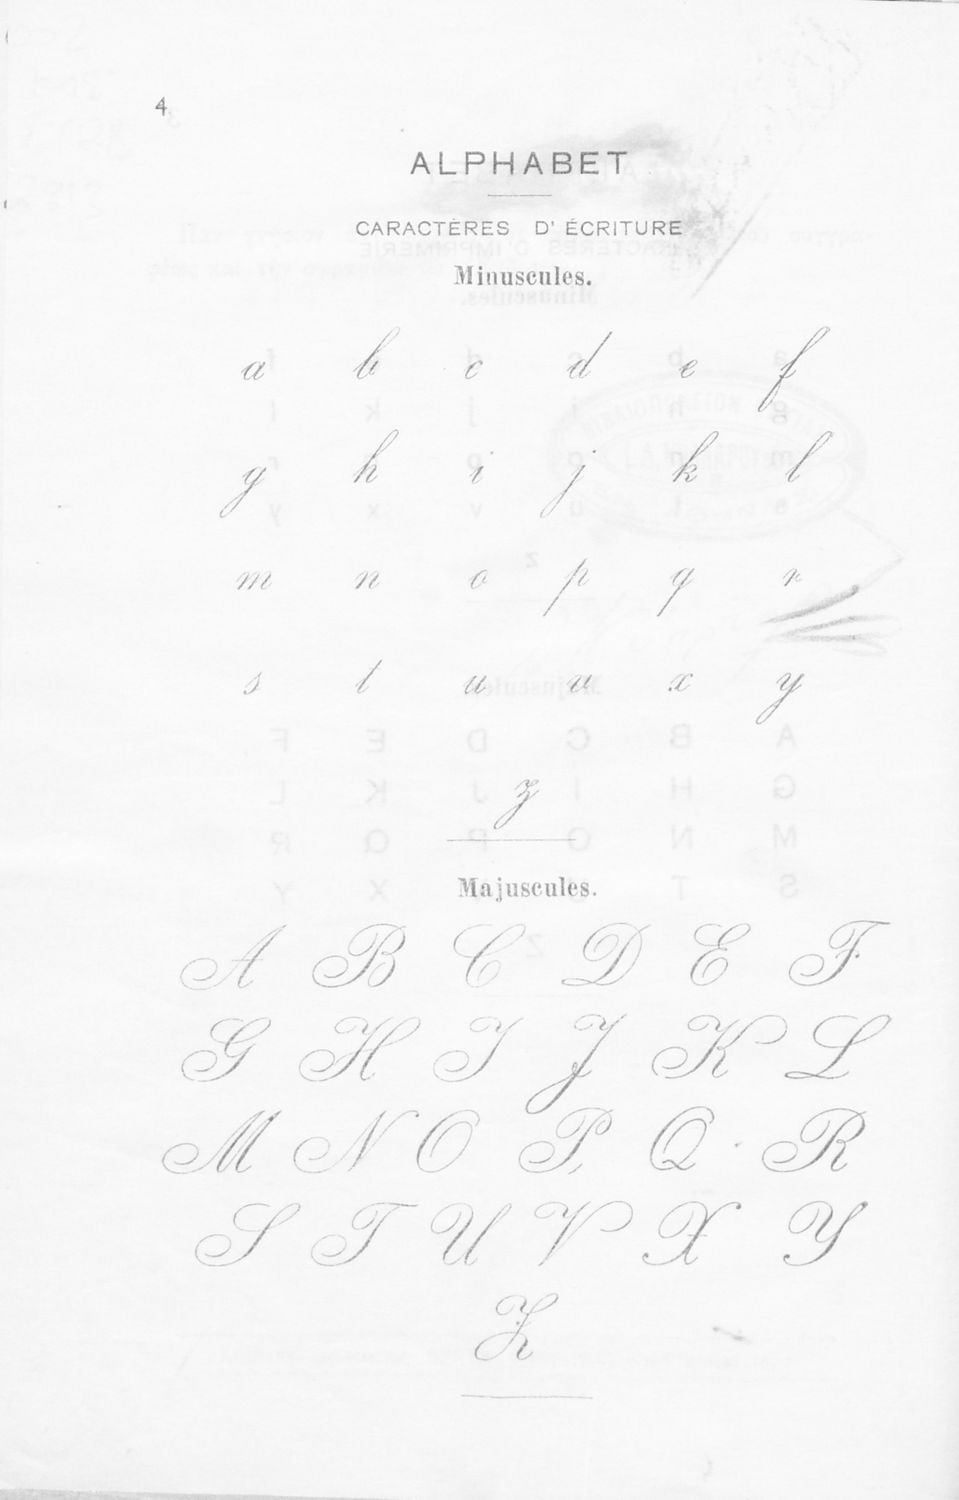 4
ALPHABET
CARACTÈRES D' ÉCRITURE
Minuscules.
a b c d e f
g h i j k l
m n o p q r
s t u u x y
z
Majuscules.
A B C D E F
G H I J K L
M N O P, Q R
S T U V X Y
Z